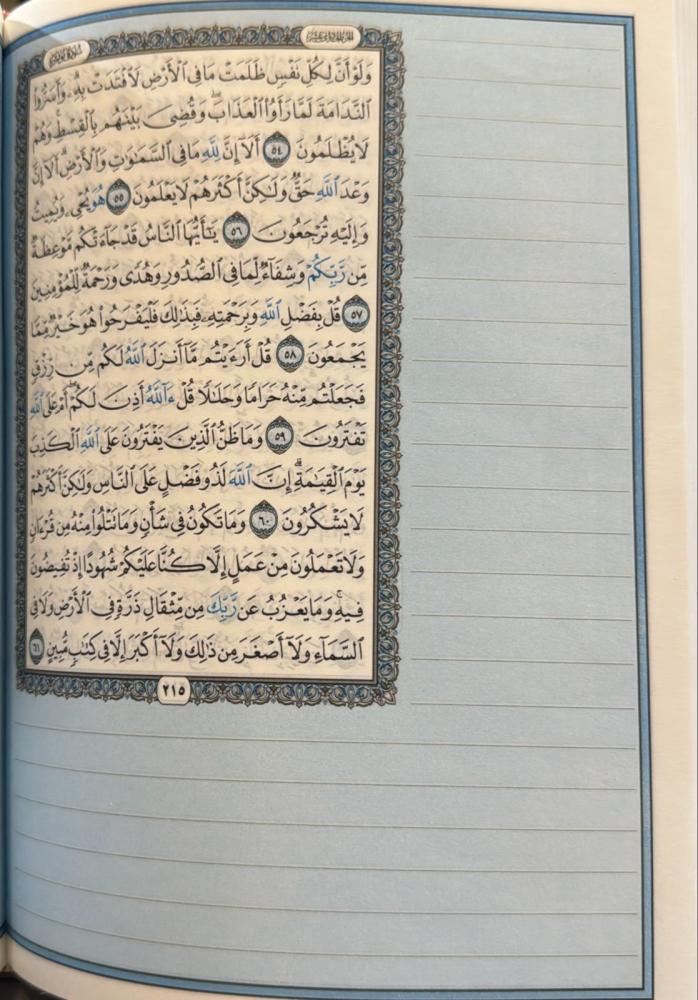 الجزء الحادي عشر
سورة يونس
وَلَوْ أَنَّ لِكُلِّ نَفْسٍ ظَلَمَتْ مَا فِي الْأَرْضِ لَافْتَدَتْ بِهِۦ وَأَسَرُّوا
النَّدَامَةَ لَمَّا رَأَوُا الْعَذَابَ ۖ وَقُضِيَ بَيْنَهُم بِالْقِسْطِ ۚ وَهُمْ
لَا يُظْلَمُونَ ٥٤ أَلَا إِنَّ لِلَّهِ مَا فِي السَّمَٰوَٰتِ وَالْأَرْضِ ۗ أَلَا إِنَّ
وَعْدَ اللَّهِ حَقٌّ وَلَٰكِنَّ أَكْثَرَهُمْ لَا يَعْلَمُونَ ٥٥ هُوَ يُحْيِۦ وَيُمِيتُ
وَإِلَيْهِ تُرْجَعُونَ ٥٦ يَٰٓأَيُّهَا النَّاسُ قَدْ جَآءَتْكُم مَّوْعِظَةٌ
مِّن رَّبِّكُمْ وَشِفَآءٌ لِّمَا فِي الصُّدُورِ وَهُدًى وَرَحْمَةٌ لِّلْمُؤْمِنِينَ
٥٧ قُلْ بِفَضْلِ اللَّهِ وَبِرَحْمَتِهِۦ فَبِذَٰلِكَ فَلْيَفْرَحُوا هُوَ خَيْرٌ مِّمَّا
يَجْمَعُونَ ٥٨ قُلْ أَرَءَيْتُم مَّآ أَنزَلَ اللَّهُ لَكُم مِّن رِّزْقٍ
فَجَعَلْتُم مِّنْهُ حَرَامًا وَحَلَٰلًا قُلْ ءَآللَّهُ أَذِنَ لَكُمْ ۖ أَمْ عَلَى اللَّهِ
تَفْتَرُونَ ٥٩ وَمَا ظَنُّ الَّذِينَ يَفْتَرُونَ عَلَى اللَّهِ الْكَذِبَ
يَوْمَ الْقِيَٰمَةِ ۗ إِنَّ اللَّهَ لَذُو فَضْلٍ عَلَى النَّاسِ وَلَٰكِنَّ أَكْثَرَهُمْ
لَا يَشْكُرُونَ ٦٠ وَمَا تَكُونُ فِي شَأْنٍ وَمَا تَتْلُوا مِنْهُ مِن قُرْءَانٍ
وَلَا تَعْمَلُونَ مِنْ عَمَلٍ إِلَّا كُنَّا عَلَيْكُمْ شُهُودًا إِذْ تُفِيضُونَ
فِيهِ ۚ وَمَا يَعْزُبُ عَن رَّبِّكَ مِن مِّثْقَالِ ذَرَّةٍ فِي الْأَرْضِ وَلَا فِي
السَّمَآءِ وَلَآ أَصْغَرَ مِن ذَٰلِكَ وَلَآ أَكْبَرَ إِلَّا فِي كِتَٰبٍ مُّبِينٍ ٦١
٢١٥